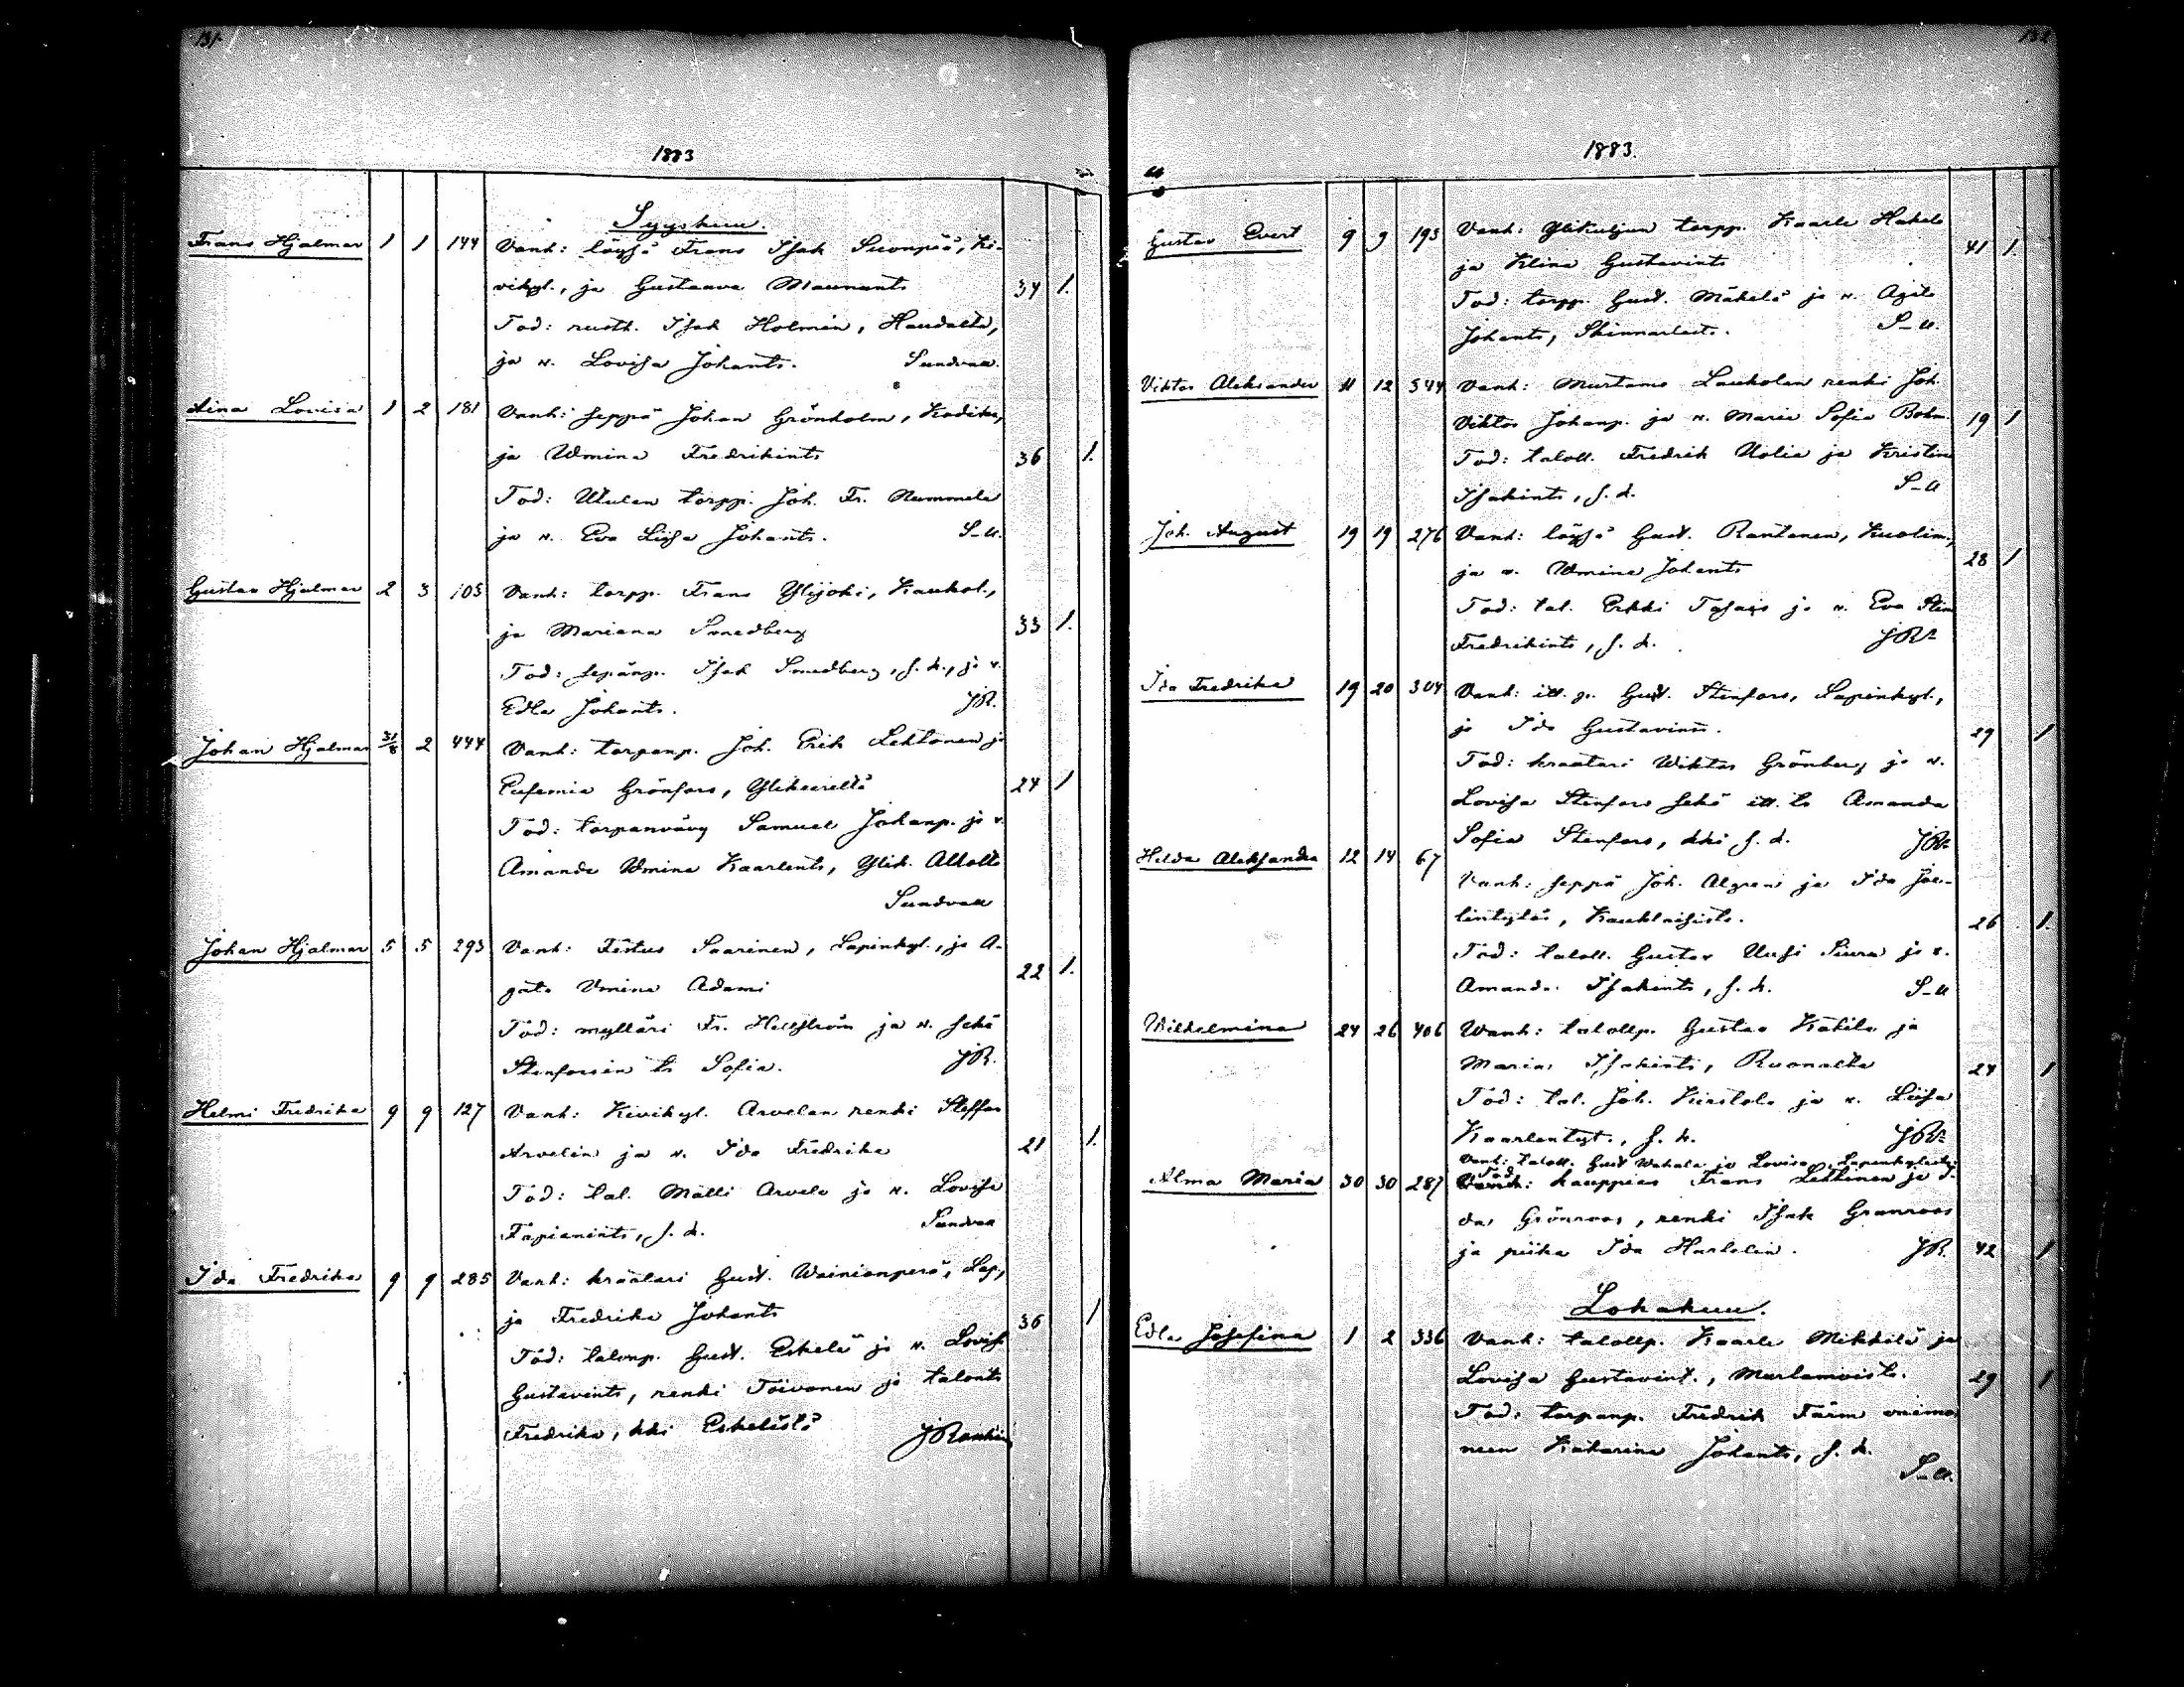 131
1883
Syyskuu.
Frans Hjalmar 1 1 144 Vanh: löysä Frans Isak Suonpää, Ki-
vikyl., ja Gustaava Maununts 34 1.
Tod: rusth. Isak Holmén, Haudalta,
ja v. Lovisa Johants. Sundvall.
Aina Lovisa 1 2 181 Vanh: seppä Johan Grönholm, Kodika,
ja Wmina Fredrikints 36 1.
Tod: Utulan torpp. Joh. Fr. Nummela
ja v. Eva Liisa Johants. S-ll.
Gustav Hjalmar 2 3 103 Vanh: torpp. Frans Ylijoki, Kaukol.,
ja Mariana Smedberg 33 1.
Tod: sepänp. Isak Smedberg, s. k., ja v.
Edla Johants. JR.
Johan Hjalmar 31/8 2 444 Vanh: torpanp. Joh. Erik Lehtonen ja
Eufemia Grönfors, 24 1
Tod: torpanvävy Samuel Johanp. ja v.
Amanda Wmina Kaarlents, Ylik.
Sundvall
Johan Hjalmar 5 5 293 Vanh: Festus Saarinen, Lapinkyl., ja A-
gata Vmina Adami 22 1.
Tod: mylläri Fr. Hellström ja v. sekä
Stenforsin tr Sofia. JR.
Helmi Fredrika 9 9 127 Vanh: Kivikyl. Arvelan renki Steffan
Arvelin ja v. Ida Fredrika 21 1.
Tod: tal. Matti Arvela ja v. Lovisa
Tapianints, s. k. Sundvall
Ida Fredrika 9 9 285 Vanh: kräätari Gust. Wainionperä, Lap.,
ja Fredrika Johants 36 1
Tod: talonp. Gust. Eskelä ja v. Lovisa
Gustavints, renki Toivonen ja talonts
Fredrika, kki Eskelästä JRankin
1883.
Gustav Evert 9 9 193 Vanh: torpp. Kaarle Hakala
ja Klina Gustavints 41 1.
Tod: torpp. Gust. Mäkelä ja v. Agata
Johants, S-ll.
Viktor Aleksander 11 12 544 Vanh: Murtamo Laukolan renki Joh.
Viktor Johanp. ja v. Maria Sofia 19 1
Tod: taloll. Fredrik Uolia ja Kristina
Isakints, s. k. S-ll
Joh. August 19 19 276 Vanh: löysä Gust. Rantanen, Kuolim.,
ja v. Wmina Johants 28 1
Tod: tal. Erkki ja v. Eva Stina
Fredrikints, s. k. JRn
Ida Fredrika 19 20 304 Vanh: itt. p. Gust. Stenfors, Lapinkyl.,
ja Ida Gustavints. 29 1
Tod: kräätari Wiktor Grönberg ja v.
Lovisa Stenfors sekä itt. tr Amanda
Sofia Stenfors, kki s. k. JRn
Hilda Aleksandra 12 14 67 Vanh: seppä Joh. Algren ja Ida Joe-
lintytär, Kauklaisista. 26 1.
Tod: taloll. Gustav Uusi Siura ja v.
Amanda Isakints, s. k. S-ll
Wilhelmina 24 26 406 Wanh: talollp. Gustav Kätilä ja
Maria Isakints, Ruonalta 24 1
Tod: tal. Joh. Kirstola ja v. Liisa
Kaarlentyt., s. k. JRn
Vanh: taloll. Gust Wahala ja Lovisa, Lapinkylästä
Alma Maria 30 30 287 Tod: kauppias Frans Lehtinen ja I-
da Grönroos, renki Isak Granroos
ja piika Ida Harlelin. JR. 42 1
Lokakuu.
Edla Josefina 1 2 336 Vanh: talollp. Kaarle Mikkilä ja
Lovisa Gustavint., Murtamoista. 29 1
Tod: torpanp. Fredrik Färm vaimo-
neen Katarina Johants, s. k.
S-ll.